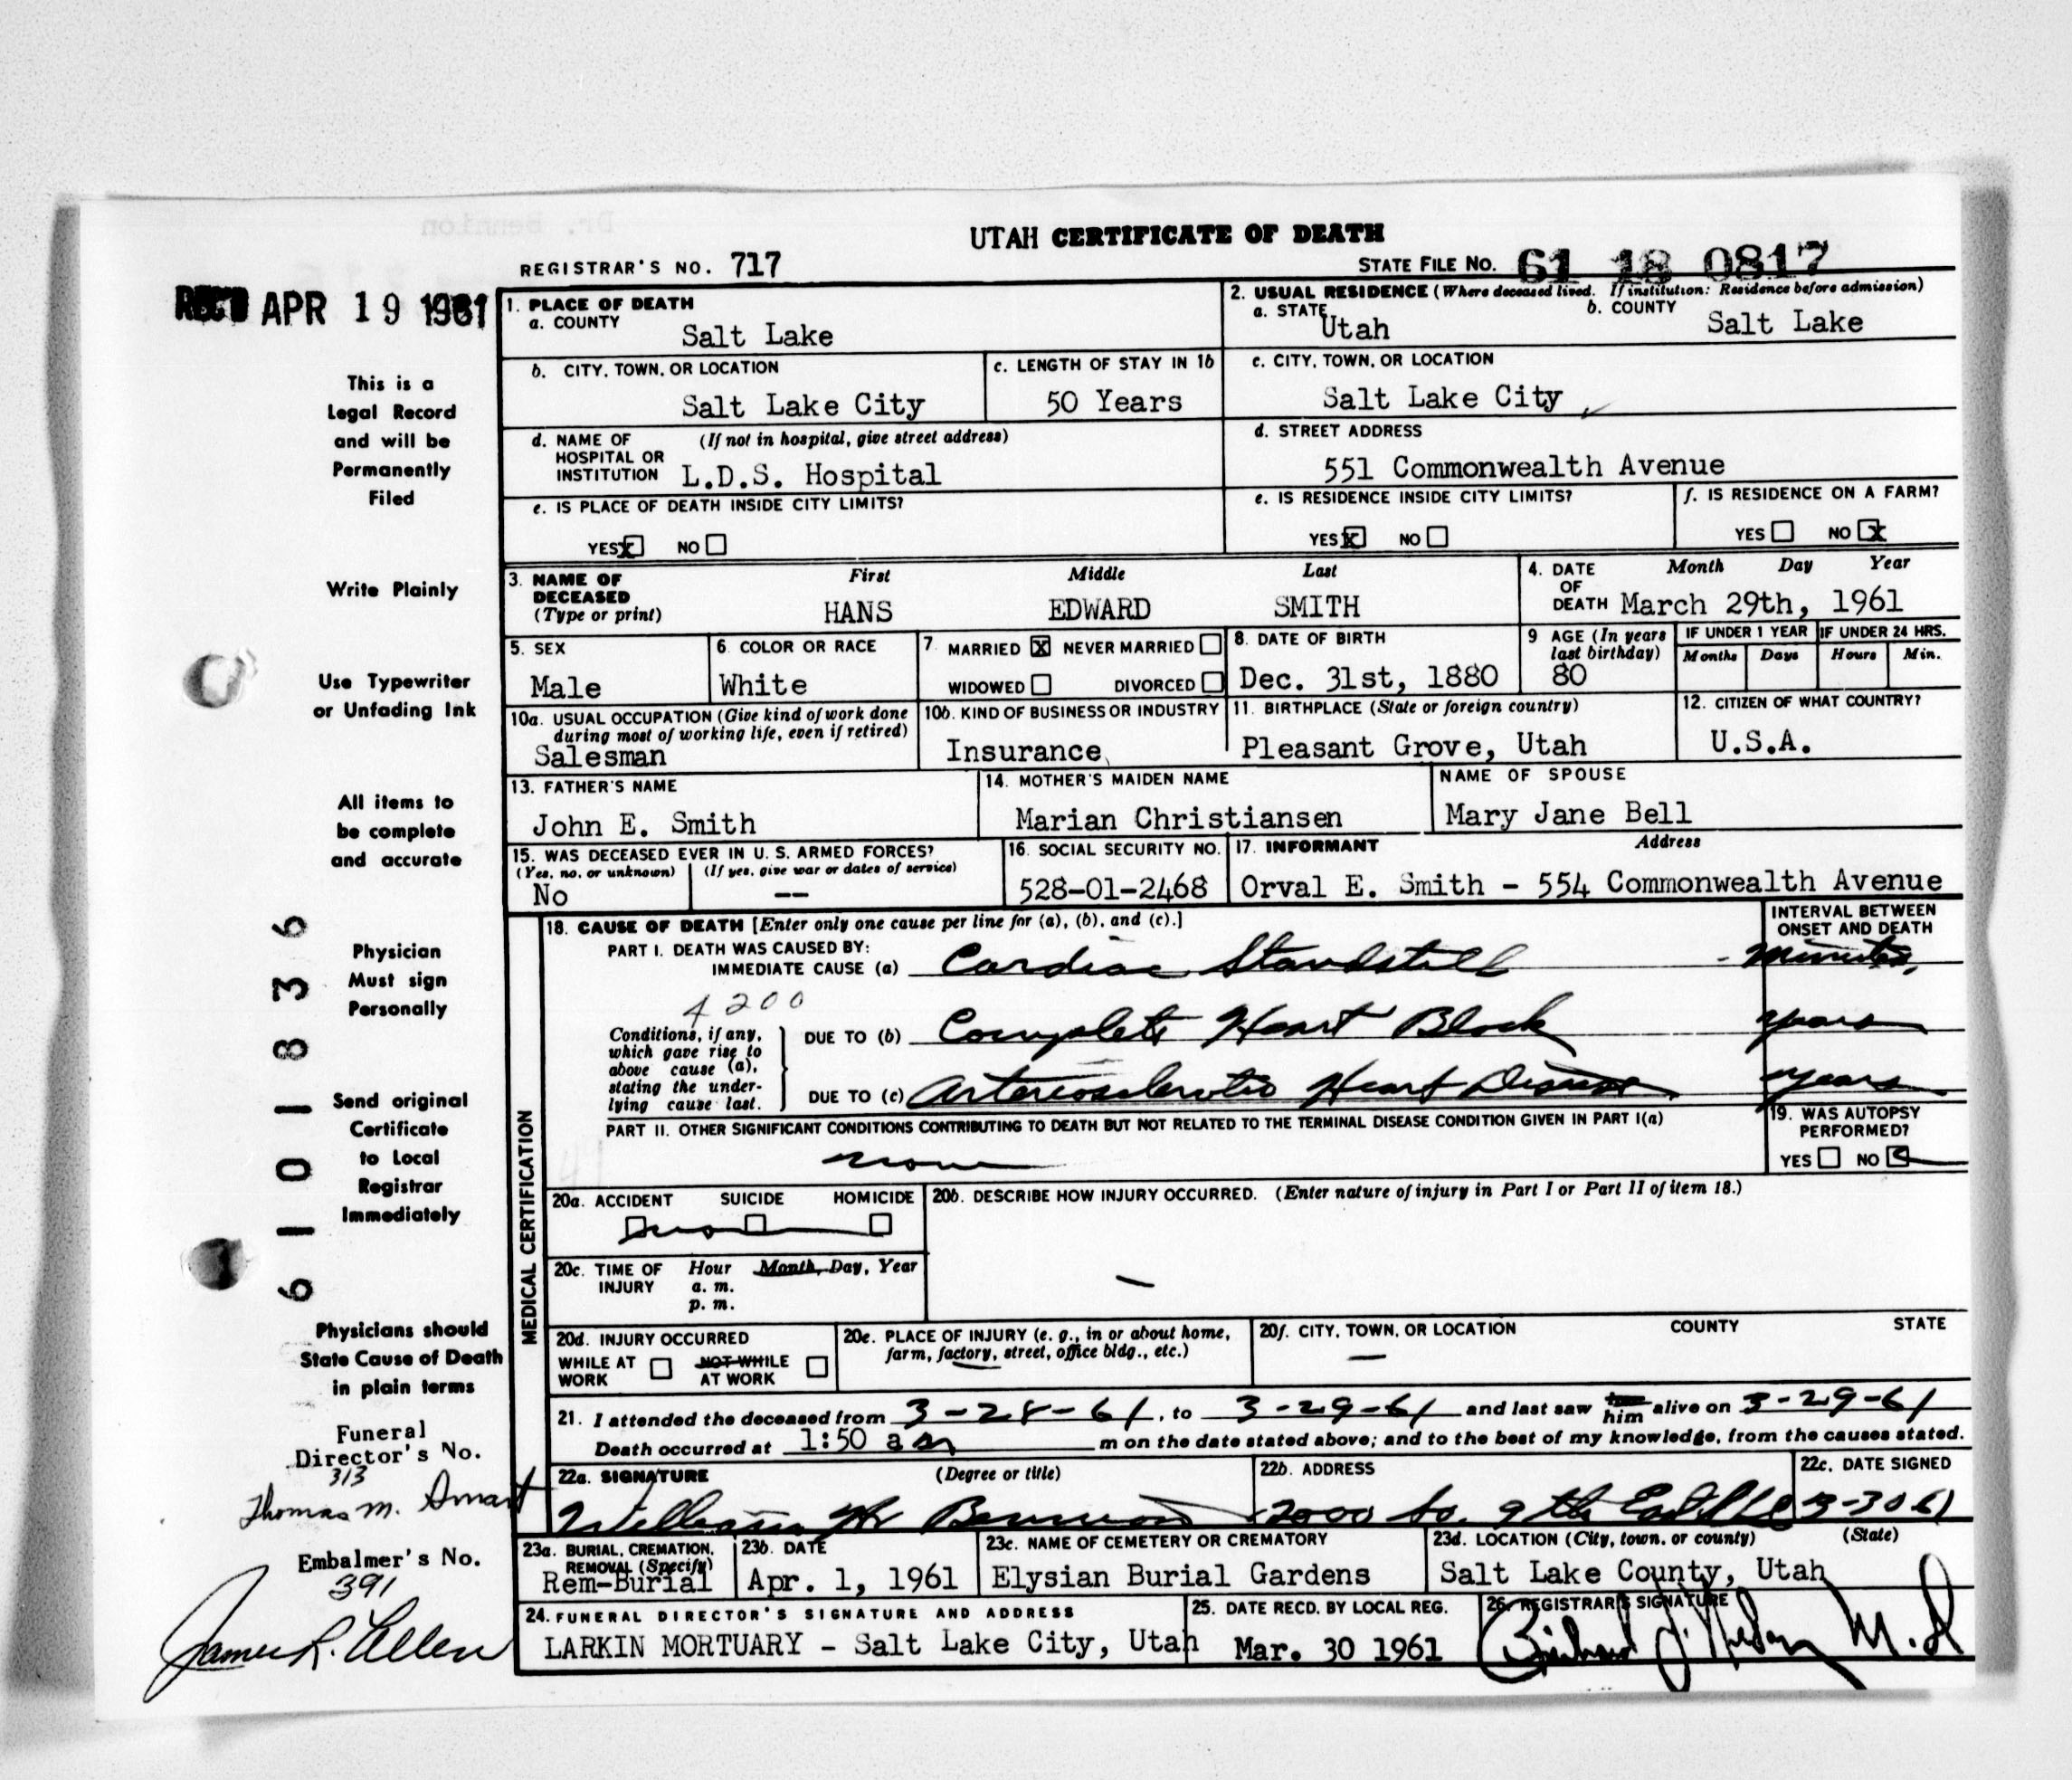 UTAH CERTIFICATE OF DEATH
REGISTRAR'S NO. 717
STATE FILE NO. 61 18 0817
REC'D APR 19 1961
This is a
Legal Record
and will be
Permanently
Filed
Write Plainly
Use Typewriter
or Unfading Ink
All items to
be complete
and accurate
Physician
Must sign
Personally
Send original
Certificate
to Local
Registrar
Immediately
Physicians should
State Cause of Death
in plain terms
Funeral
Director's No.
313
Thomas M. Smart
Embalmer's No.
391
James R. Allen
6101836
1. PLACE OF DEATH
a. COUNTY
Salt Lake
2. USUAL RESIDENCE (Where deceased lived. If institution: Residence before admission)
a. STATE Utah
b. COUNTY Salt Lake
b. CITY, TOWN, OR LOCATION
Salt Lake City
c. LENGTH OF STAY IN 1b
50 Years
c. CITY, TOWN, OR LOCATION
Salt Lake City
d. NAME OF HOSPITAL OR INSTITUTION (If not in hospital, give street address)
L.D.S. Hospital
d. STREET ADDRESS
551 Commonwealth Avenue
e. IS PLACE OF DEATH INSIDE CITY LIMITS?
YES X NO
e. IS RESIDENCE INSIDE CITY LIMITS?
YES X NO
f. IS RESIDENCE ON A FARM?
YES NO X
3. NAME OF DECEASED (Type or print)
First Middle Last
HANS EDWARD SMITH
4. DATE OF DEATH Month Day Year
March 29th, 1961
5. SEX
Male
6. COLOR OR RACE
White
7. MARRIED X NEVER MARRIED
WIDOWED DIVORCED
8. DATE OF BIRTH
Dec. 31st, 1880
9 AGE (In years last birthday)
80
IF UNDER 1 YEAR
Months Days
IF UNDER 24 HRS.
Hours Min.
10a. USUAL OCCUPATION (Give kind of work done during most of working life, even if retired)
Salesman
10b. KIND OF BUSINESS OR INDUSTRY
Insurance
11. BIRTHPLACE (State or foreign country)
Pleasant Grove, Utah
12. CITIZEN OF WHAT COUNTRY?
U.S.A.
13. FATHER'S NAME
John E. Smith
14. MOTHER'S MAIDEN NAME
Marian Christiansen
NAME OF SPOUSE
Mary Jane Bell
15. WAS DECEASED EVER IN U. S. ARMED FORCES?
(Yes, no, or unknown) (If yes, give war or dates of service)
No --
16. SOCIAL SECURITY NO.
528-01-2468
17. INFORMANT Address
Orval E. Smith - 554 Commonwealth Avenue
MEDICAL CERTIFICATION
18. CAUSE OF DEATH [Enter only one cause per line for (a), (b), and (c).]
INTERVAL BETWEEN ONSET AND DEATH
PART I. DEATH WAS CAUSED BY:
IMMEDIATE CAUSE (a) Cardiac Standstill - Minutes
4200
Conditions, if any, which gave rise to above cause (a), stating the underlying cause last.
DUE TO (b) Complete Heart Block years
DUE TO (c) Arteriosclerotic Heart Disease years
PART II. OTHER SIGNIFICANT CONDITIONS CONTRIBUTING TO DEATH BUT NOT RELATED TO THE TERMINAL DISEASE CONDITION GIVEN IN PART I(a)
none
19. WAS AUTOPSY PERFORMED?
YES NO
20a. ACCIDENT SUICIDE HOMICIDE
no
20b. DESCRIBE HOW INJURY OCCURRED. (Enter nature of injury in Part I or Part II of item 18.)
20c. TIME OF INJURY Hour Month, Day, Year
a. m.
p. m.
20d. INJURY OCCURRED
WHILE AT WORK NOT WHILE AT WORK
20e. PLACE OF INJURY (e. g., in or about home, farm, factory, street, office bldg., etc.)
20f. CITY, TOWN, OR LOCATION COUNTY STATE
21. I attended the deceased from 3-28-61, to 3-29-61 and last saw her him alive on 3-29-61
Death occurred at 1:50 am m on the date stated above; and to the best of my knowledge, from the causes stated.
22a. SIGNATURE (Degree or title)
William H Bennion
22b. ADDRESS
2000 So. 9th East SLC
22c. DATE SIGNED
3-30 61
23a. BURIAL, CREMATION, REMOVAL (Specify)
Rem-Burial
23b. DATE
Apr. 1, 1961
23c. NAME OF CEMETERY OR CREMATORY
Elysian Burial Gardens
23d. LOCATION (City, town, or county) (State)
Salt Lake County, Utah
24. FUNERAL DIRECTOR'S SIGNATURE AND ADDRESS
LARKIN MORTUARY - Salt Lake City, Utah
25. DATE RECD. BY LOCAL REG.
Mar. 30 1961
26. REGISTRAR'S SIGNATURE
M.D